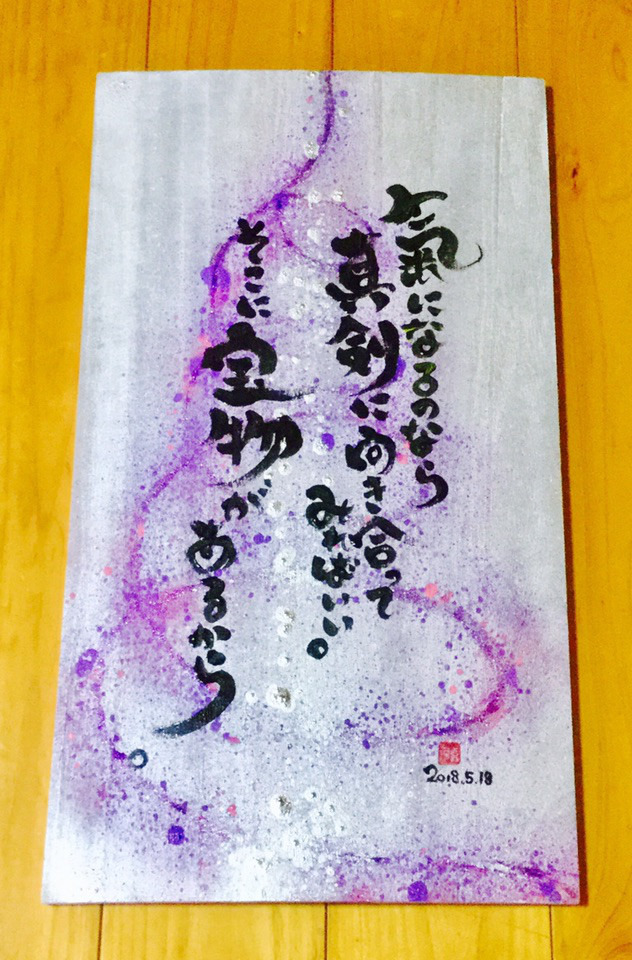 氣になるのなら
真剣に向き合って
みればいい。
そこに宝物があるから。
2018.5.18